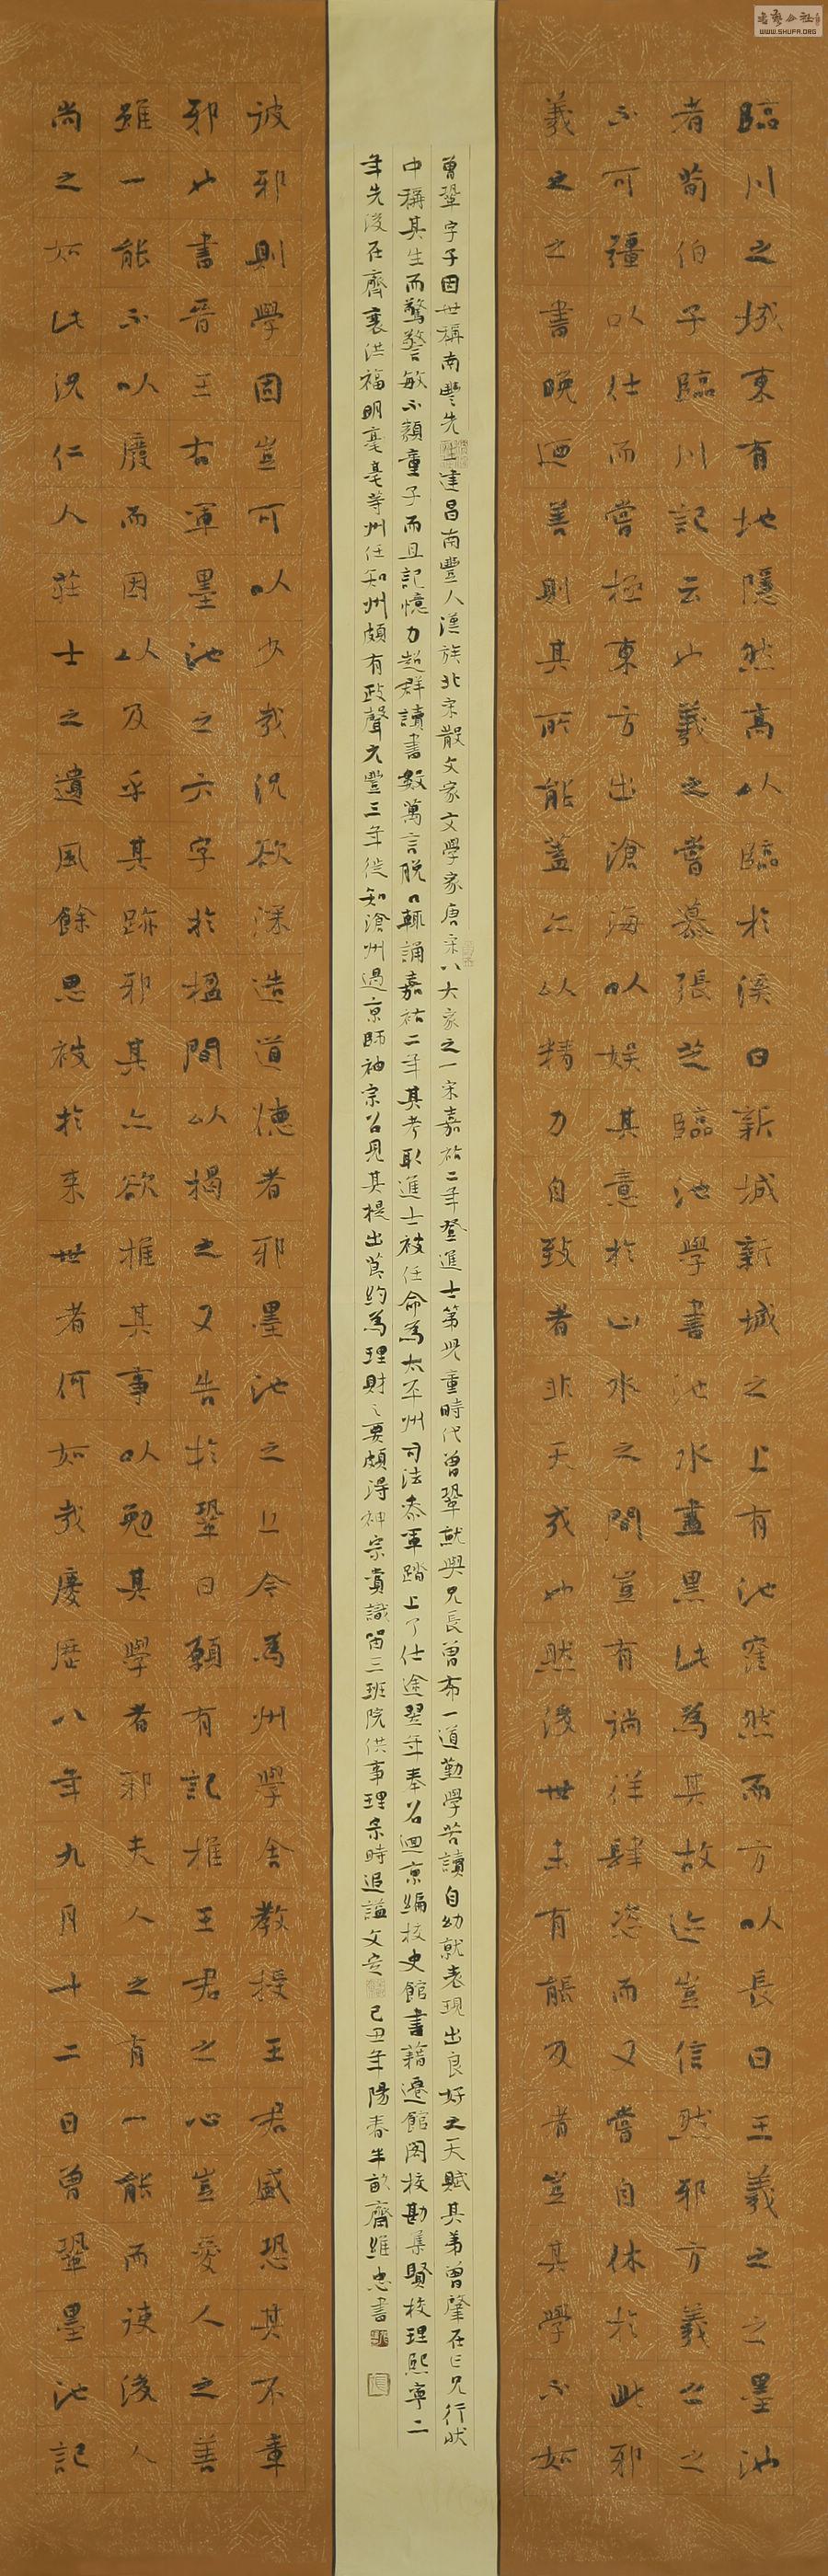 臨川之城東有地隱然高以臨於溪曰新城新城之上有池窪然而方以長曰王羲之之墨池
者荀伯子臨川記云也羲之嘗慕張芝臨池學書池水盡黑此為其故迹豈信然邪方羲之之
不可彊以仕而嘗極東方出滄海以娛其意於山水之間豈有徜徉肆恣而又嘗自休於此邪
羲之之書晚迺善則其所能蓋亦以精力自致者非天成也然後世未有能及者豈其學不如
彼邪則學固豈可以少哉況欲深造道德者邪墨池之上今為州學舍教授王君盛恐其不章
邪也書晉王右軍墨池之六字於楹間以揭之又告於鞏曰願有記推王君之心豈愛人之善
雖一能不以廢而因以及乎其跡邪其亦欲推其事以勉其學者邪夫人之有一能而使後人
尚之如此況仁人莊士之遺風餘思被於來世者何如哉慶歷八年九月十二日曾鞏墨池記
曾鞏字子固世稱南豐先生建昌南豐人漢族北宋散文家文學家唐宋八大家之一宋嘉祐二年登進士第兒童時代曾鞏就與兄長曾布一道勤學苦讀自幼就表現出良好之天賦其弟曾肇在亡兄行狀
中稱其生而驚警敏不類童子而且記憶力超群讀書數萬言脫口輒誦嘉祐二年其考取進士被任命為太平州司法參軍踏上了仕途翌年奉召迴京編校史館書籍遷館閣校勘集賢校理熙寧二
年先後在齊襄洪福明亳亳等州任知州頗有政聲元豐三年徙知滄州過京師神宗召見其提出節約為理財之要頗得神宗賞識留三班院供事理宗時追謚文定 己丑年陽春半畝齋維忠書
WWW.SHUFA.ORG